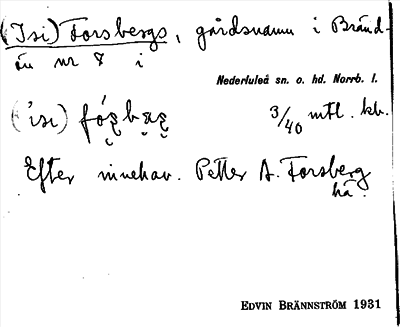 (Isi) Forsbergs, gårdsnamn i Bränd-
ön nr 8 i
Nederluleå sn. o. hd. Norrb. l.
3/40 mtl. kb.
Efter innehav. Petter A. Forsberg
hä.
EDVIN BRÄNNSTRÖM 1931